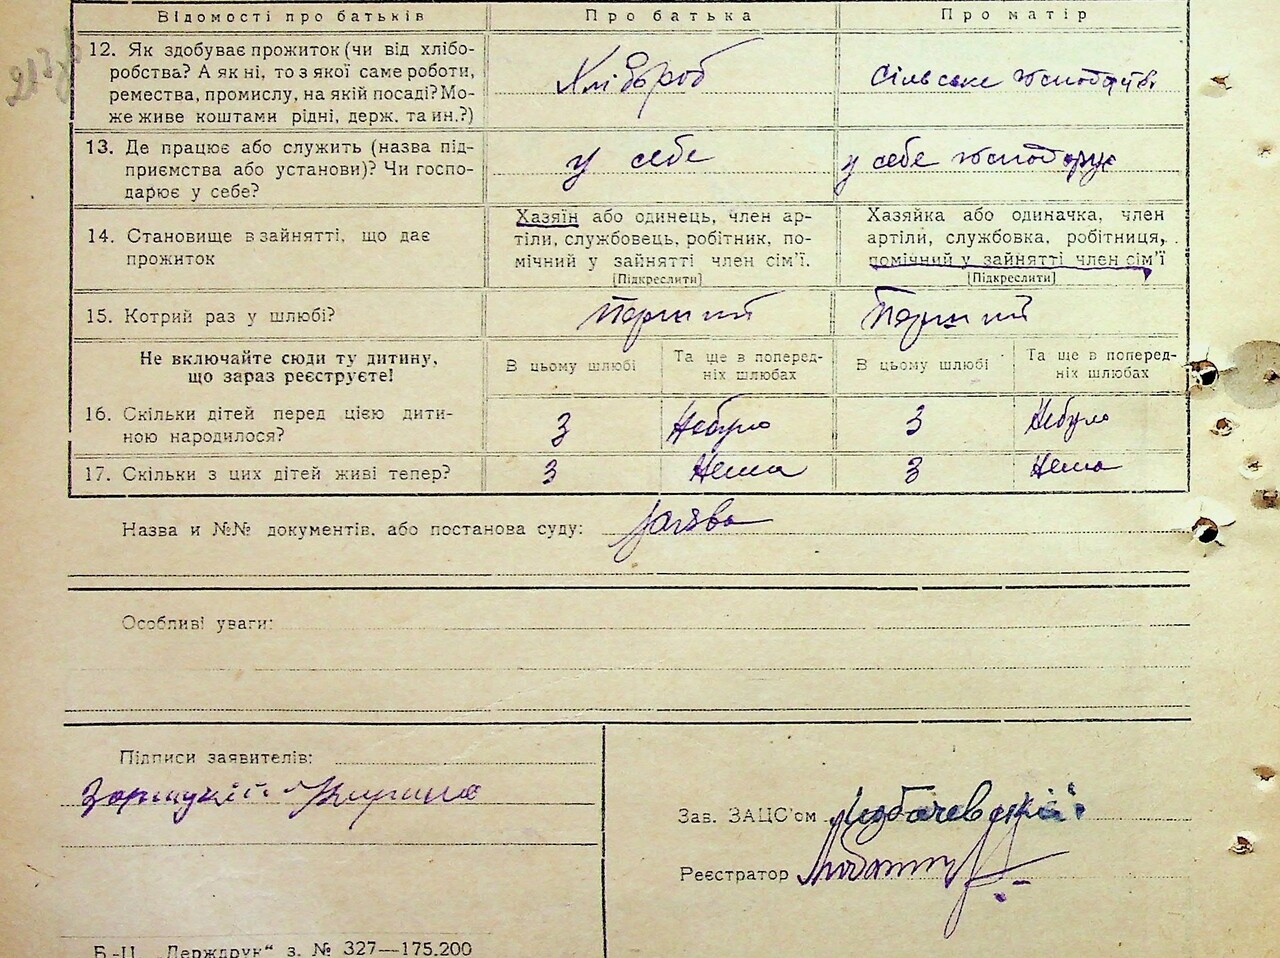 Відомості про батьків Про батька Про матір
12. Як здобуває прожиток (чи від хлібо-
робства? А як ні, то з якої саме роботи,
ремества, промислу, на якій посаді? Мо-
же живе коштами рідні, держ. та ин.?)
Хлібороб
Сільське господарств.
13. Де працює або служить (назва під-
приємства або установи)? Чи госпо-
дарює у себе?
у себе
у себе господарює
14. Становище в зайнятті, що дає
прожиток
Хазяїн або одинець, член ар-
тіли, службовець, робітник, по-
мічний у зайнятті член сім'ї.
[Підкреслити]
Хазяйка або одиначка, член
артіли, службовка, робітниця,
помічний у зайнятті член сім'ї
[Підкреслити]
15. Котрий раз у шлюбі?
Перший Перший
Не включайте сюди ту дитину,
що зараз реєструєте!
В цьому шлюбі
Та ще в поперед-
ніх шлюбах
В цьому шлюбі
Та ще в поперед-
ніх шлюбах
16. Скільки дітей перед цією дити-
ною народилося?
3 Небуло 3 Небуло
17. Скільки з цих дітей живі тепер?
3 Нема 3 Нема
Назва и №№ документів, або постанова суду: заява
Особливі уваги:
Підписи заявителів:
Зав. ЗАЦС'ом
Реєстратор
Б.-Ц. „Держдрук“ з. № 327—175.200